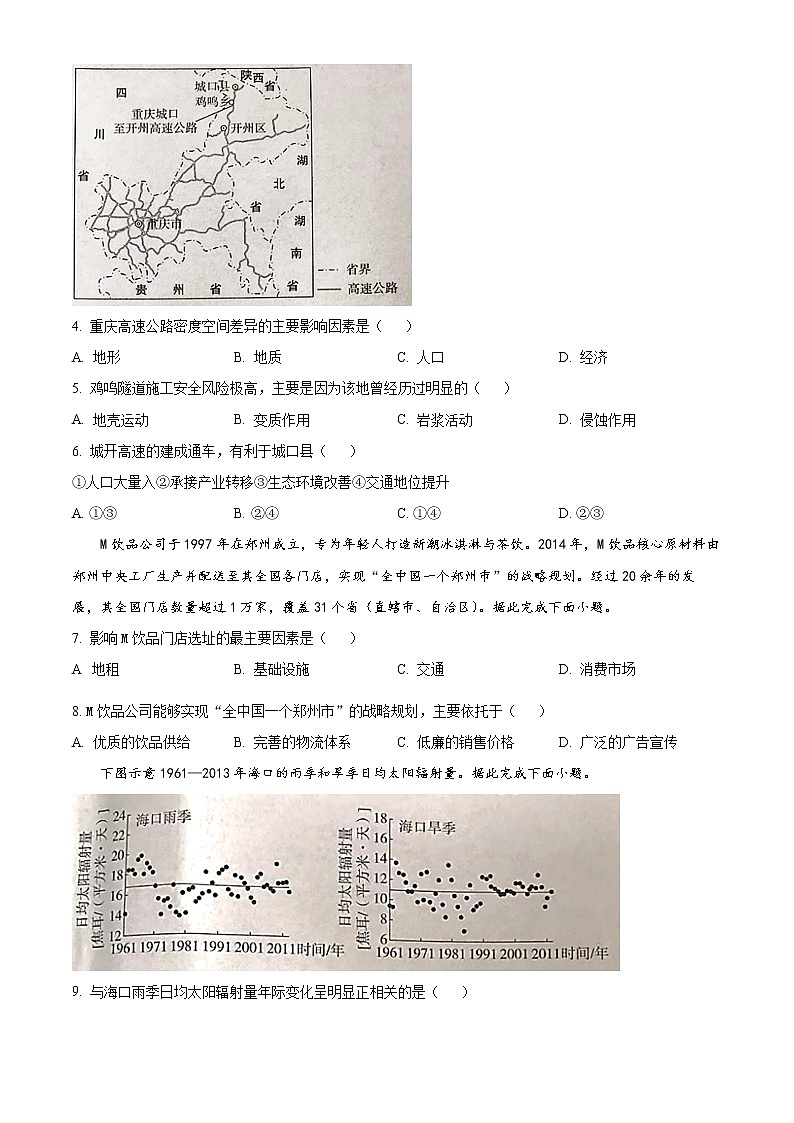 陕西省
城口县
鸡鸣乡
四川省
重庆城口
至开州高速公路
开州区
湖北省
重庆市
湖南省
贵州省
省界
高速公路
4. 重庆高速公路密度空间差异的主要影响因素是（ ）
A. 地形 B. 地质 C. 人口 D. 经济
5. 鸡鸣隧道施工安全风险极高，主要是因为该地曾经历过明显的（ ）
A. 地壳运动 B. 变质作用 C. 岩浆活动 D. 侵蚀作用
6. 城开高速的建成通车，有利于城口县（ ）
①人口大量入②承接产业转移③生态环境改善④交通地位提升
A. ①③ B. ②④ C. ①④ D. ②③
M饮品公司于1997年在郑州成立，专为年轻人打造新潮冰淇淋与茶饮。2014年，M饮品核心原材料由
郑州中央工厂生产并配送至其全国各门店，实现“全中国一个郑州市”的战略规划。经过20余年的发
展，其全国门店数量超过1万家，覆盖31个省（直辖市、自治区）。据此完成下面小题。
7. 影响M饮品门店选址的最主要因素是（ ）
A 地租 B. 基础设施 C. 交通 D. 消费市场
8. M饮品公司能够实现“全中国一个郑州市”的战略规划，主要依托于（ ）
A. 优质的饮品供给 B. 完善的物流体系 C. 低廉的销售价格 D. 广泛的广告宣传
下图示意1961—2013年海口的雨季和旱季日均太阳辐射量。据此完成下面小题。
日均太阳辐射量
[焦耳/（平方米·天）]
24
22
20
18
16
14
12
海口雨季
1961 1971 1981 1991 2001 2011时间/年
日均太阳辐射量
[焦耳/（平方米·天）]
18
16
14
12
10
8
6
海口旱季
1961 1971 1981 1991 2001 2011时间/年
9. 与海口雨季日均太阳辐射量年际变化呈明显正相关的是（ ）